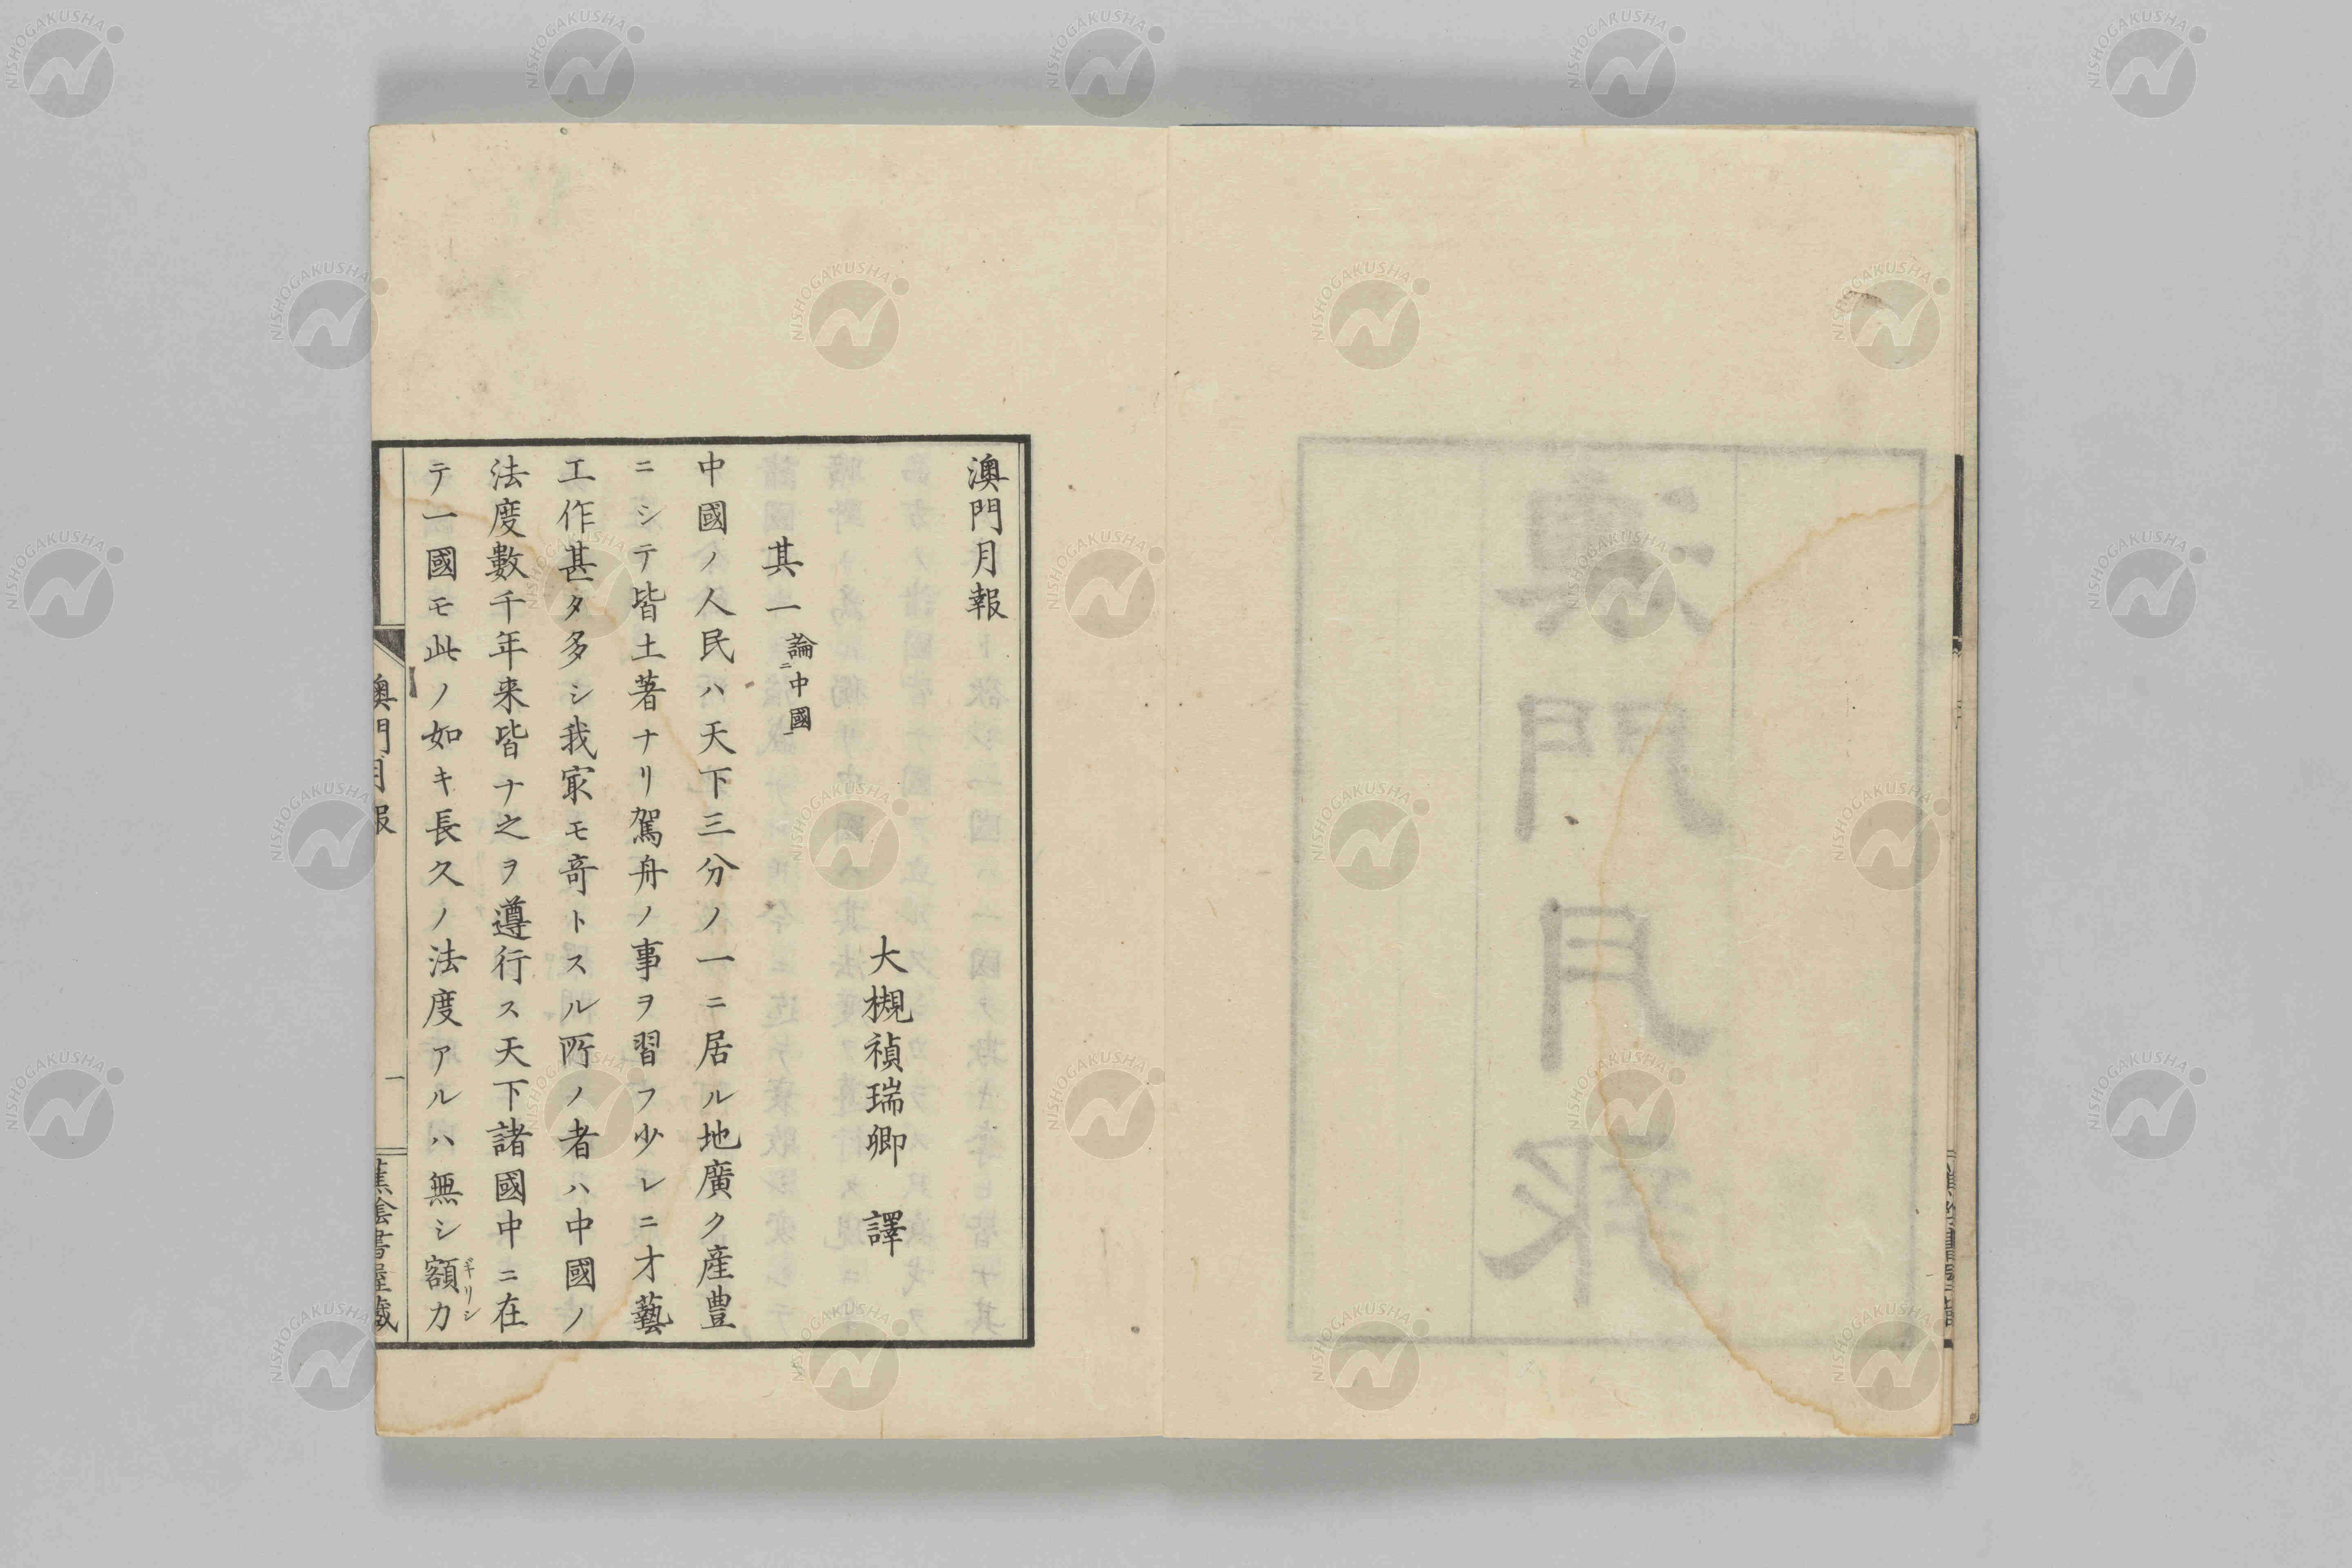 澳門月報
大槻禎瑞卿 譯
其一 論ニ中國一
中國ノ人民ハ天下三分ノ一ニ居ル地廣ク産豊
ニシテ皆土著ナリ駕舟ノ事ヲ習フ少レニオ藝
工作甚タ多シ我家モ竒トスル所ノ者ハ中國ノ
法度數千年来皆ナ之ヲ遵行ス天下諸國中ニ在
テ一國モ此ノ如キ長久ノ法度アルハ無シ額力
ギリシ
澳門月報
一
蕉陰書屋藏
NISHOGAKUSHA